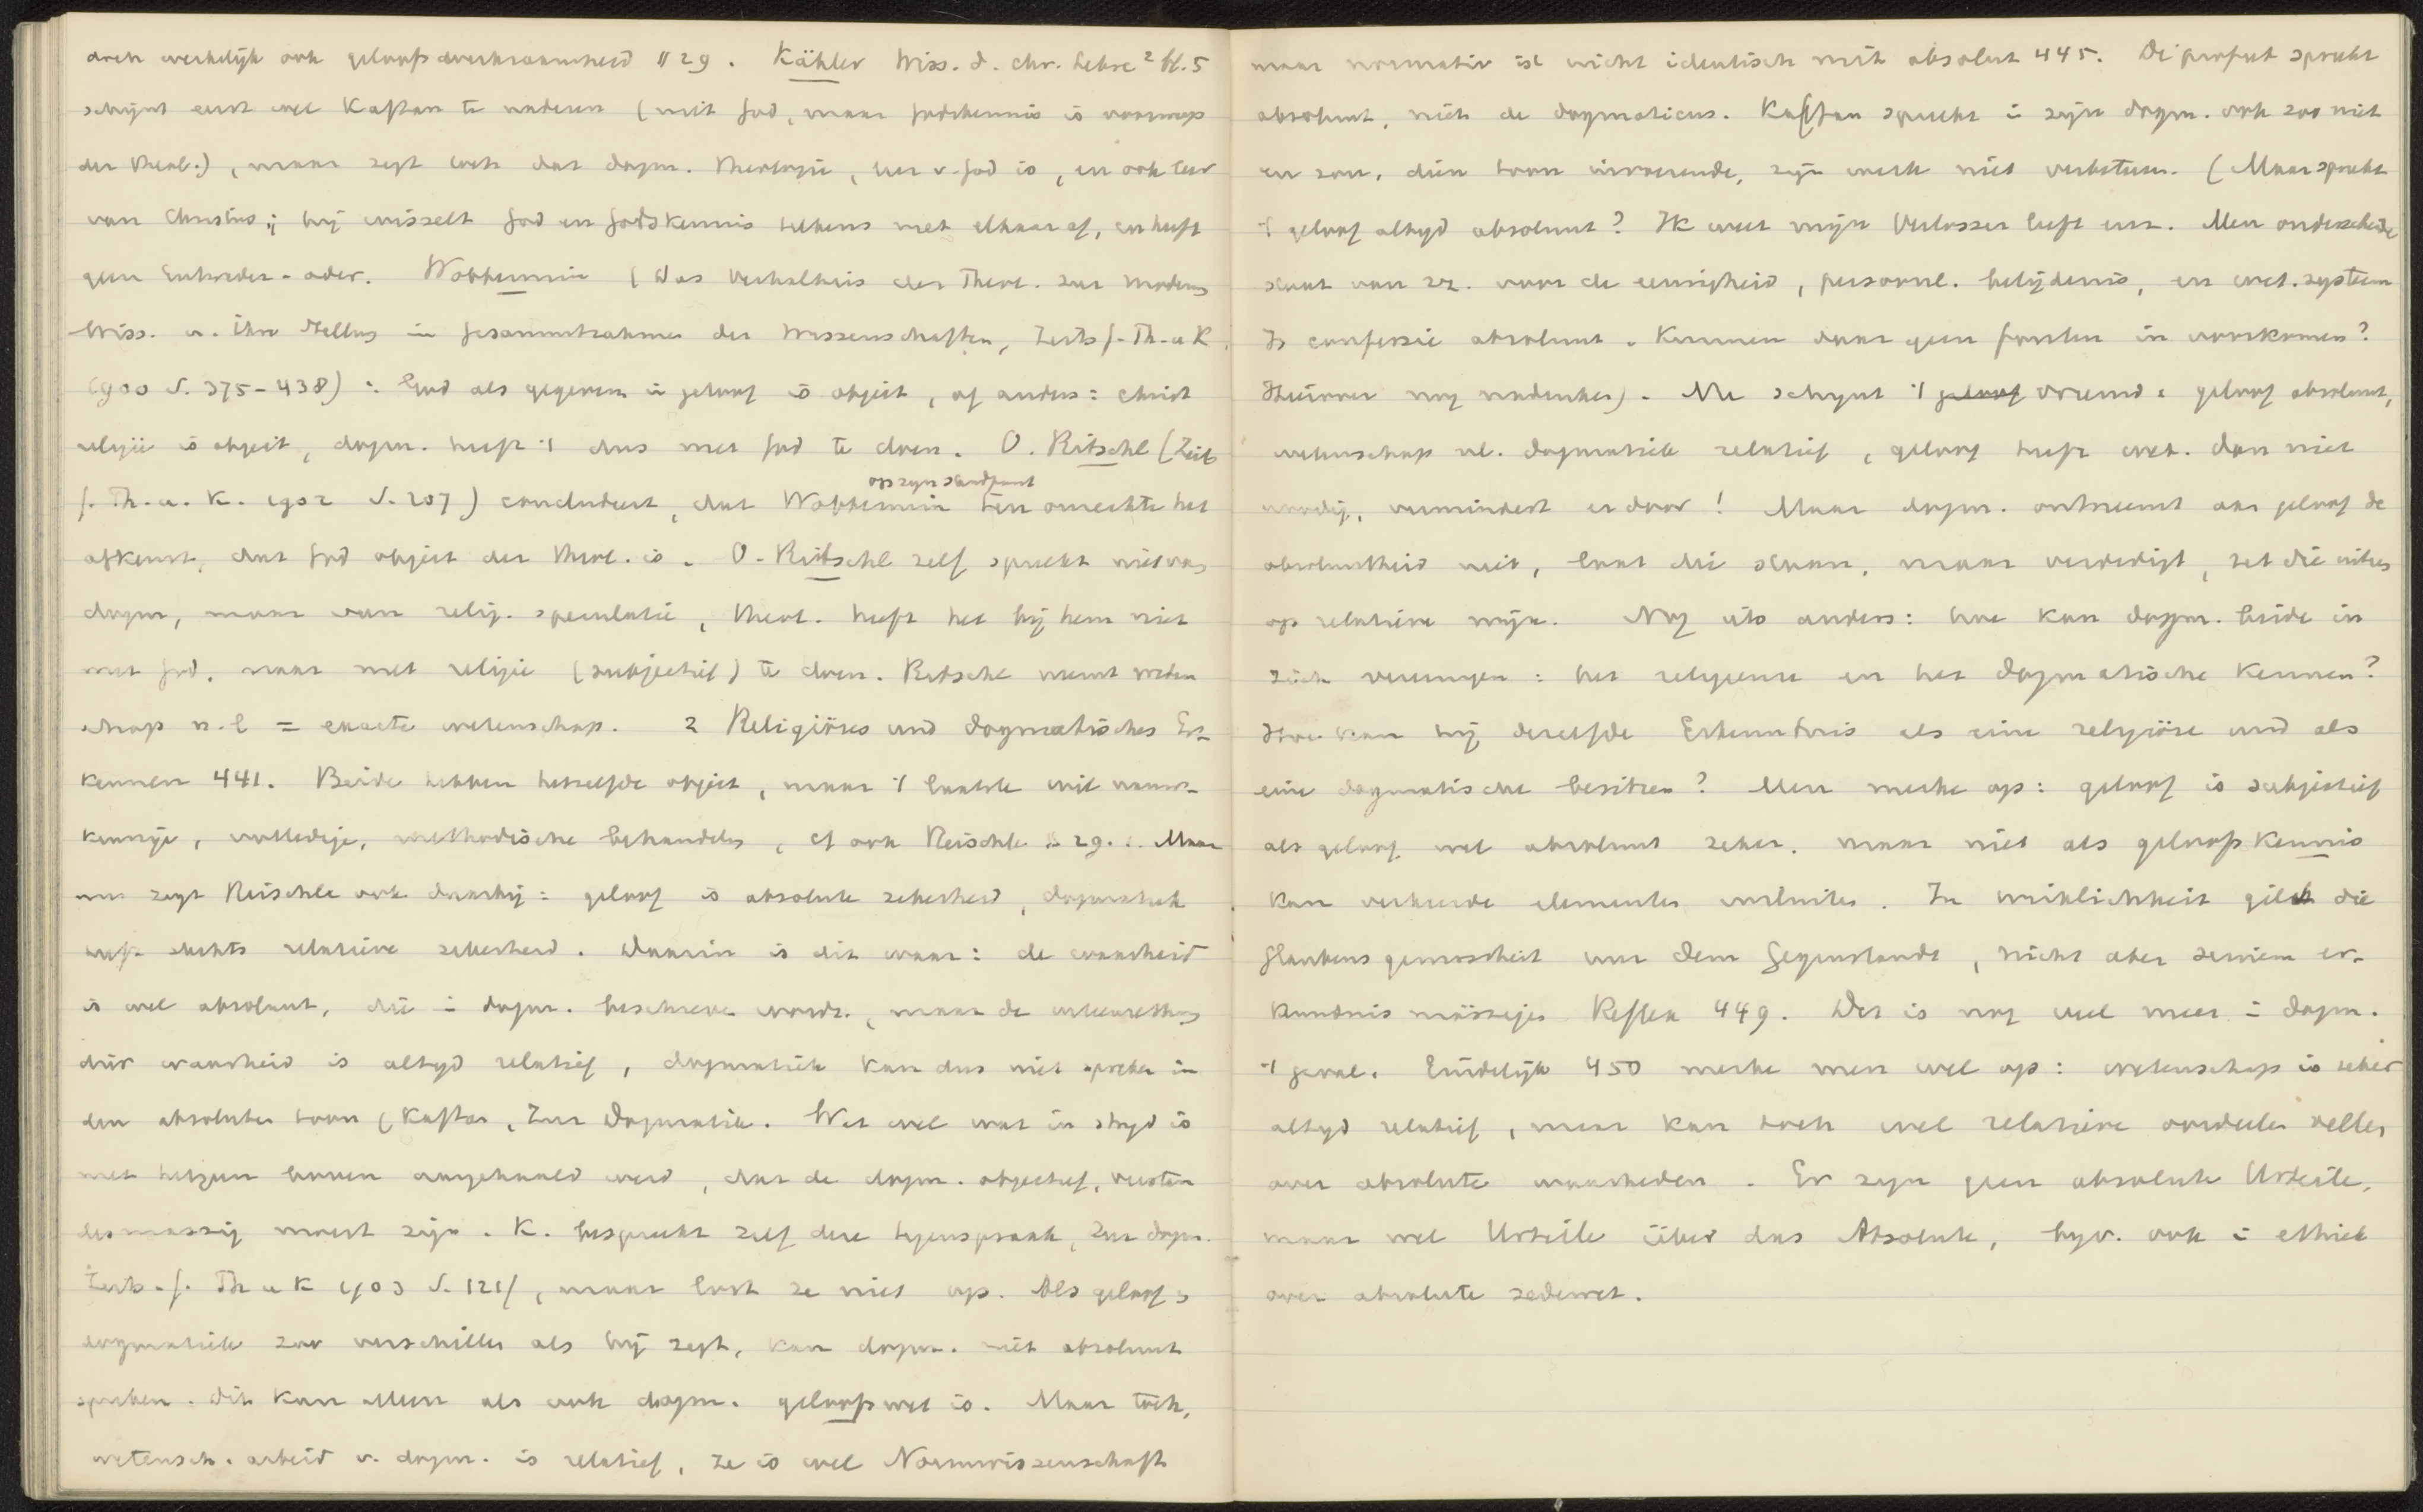 doch werkelijk ook geloofswerkzaamheid § 29. Kähler Wiss. d. chr. Lehre ² bl. 5
schijnt eerst wel Kaftan te naderen (niet God, maar Godskennis is voorwerp
der theol.), maar zegt toch dat dogm. theologie, leer v. God is, en ook leer
van Christus; hij wisselt God en Godskennis telkens met elkaar af, en heeft
geen Entweder-oder. Wobbermin (Das Verhältnis der Theol. zur modern
Wiss. u. ihre Stellung in Gesammtrahmen der Wissenschaften, Zeits f. Th. u K.
1900 S. 375-438): God als gegeven in geloof is object, of anders: christ
religie is object, dogm. heeft 't dus met God te doen. O. Ritschl (Zeits
f. Th. u. K. 1902 S. 207) concludeert, dat Wobbermin op zijn standpunt ten onrechte het
ontkent, dat God object der theol. is. O. Ritschl zelf spreekt niet van
dogm, maar van relig. speculatie, theol. heeft het bij hem niet
met God, maar met religie (subjectief) te doen. Ritschl neemt weten
schap n.l = exacte wetenschap. 2 Religiöses und dogmatisches Er-
kennen 441. Beide hebben hetzelfde object, maar 't laatste wil nauw-
keurige, volledige, methodische behandeling, cf ook Reischle § 29. Maar
nu zegt Reischle ook daarbij: geloof is absolute zekerheid, dogmatiek
heeft slechts relatieve zekerheid. Daarin is dit waar: de waarheid
is wel absoluut, die in dogm. beschreven wordt, maar de uiteenzetting
dier waarheid is altijd relatief, dogmatiek kan dus niet spreken in
den absoluten toon (Kaftan, Zur Dogmatik. Wat wel wat in strijd is
met hetgeen boven aangehaald werd, dat de dogm. objectief, verstan
desmassig moest zijn. K. bespreekt zelf deze tegenspraak, Zur dogm.
Zeits. f. Th u K 1903 S. 121f, maar lost ze niet op. Als geloof en
dogmatiek zoo verschillen als hij zegt, kan dogm. niet absoluut
spreken. Dit kan alleen als ook dogm. geloofswet is. Maar toch,
wetensch. arbeid v. dogm. is relatief, ze is wel Normwissenschaft
maar normativ ist nicht identisch mit absolut 445. De profeet spreekt
absoluut, niet de dogmaticus. Kaftan spreekt in zijn dogm. ook zoo niet
en zou, dien toon invoerende, zijn werk niet verbeteren. (Maar spreekt
't geloof altijd absoluut? Ik weet mijn Verlosser leeft enz. Men onderscheide
staat van zz. voor de eeuwigheid, persoonl. belijdenis, en wet. systeem
Is confessie absoluut. Kunnen daar geen fouten in voorkomen?
Hierover nog nadenken). Nu schijnt 't geloof vreemd: geloof absoluut,
wetenschap nl. dogmatiek relatief, geloof heeft wet. dan niet
noodig, vermindert er door! Maar dogm. ontneemt aan geloof de
absoluutheid niet, laat die staan, maar verdedigt, zet die uiteen
op relatieve wijze. Nog iets anders: hoe kan dogm. beide in
zich vereenigen: het religieuse en het dogmatische kennen?
Hoe kan hij dezelfde Erkenntnis als eine religiöse und als
eine dogmatische besitzen? Men merke op: geloof is subjectief
als geloof wel absoluut zeker, maar niet als geloofskennis
kan verkeerde elementen insluiten. In wirklichkeit gilt die
Glaubensgewissheit nur dem Gegenstande, nicht aber seinem er-
kenntnis mässigen Reflex 449. Dat is nog veel meer in dogm.
't geval. Eindelijk 450 merke men wel op: wetenschap is zeker
altijd relatief, maar kan toch wel relatieve oordeelen vellen
over absolute waarheden. Er zijn geen absolute Urteile,
maar wel Urteile über das Absolute, bijv. ook in ethiek
over absolute zedewet.